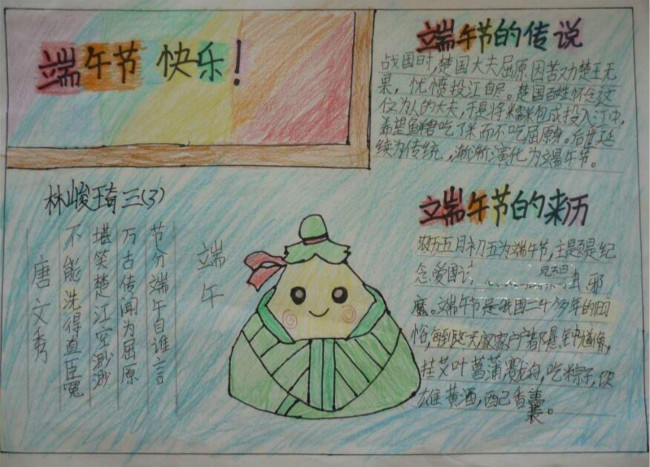 端午节快乐！
端午节的传说
战国时,楚国大夫屈原,因苦劝楚王无
果，忧愤投江自尽。楚国百姓怀念这
位为人的大夫,于是将米包成投入江中,
希望鱼吃了米而不吃屈原身。后度延
续为传统，渐渐演化为端午节。
林峻琦三(3)
端午
节分端午自谁言
万古传闻为屈原
堪笑楚江空渺渺
不能洗得直臣冤
唐文秀
端午节的来历
农历五月初五为端午节,主是纪
念爱国
虫邪
魔。端午节是我国二千多年的旧
俗,每到这天家家户户都
挂艾叶菖蒲,吃粽子,饮
雄黄酒,西己香囊。